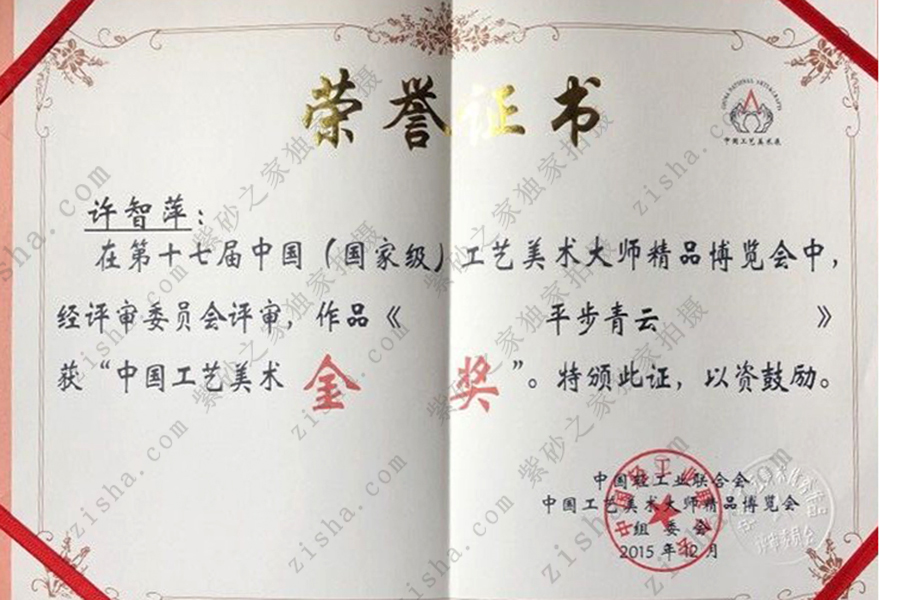 荣誉证书
CHINA NATIONAL ARTS&CRAFTS
中国工艺美术展
许智萍：
在第十七届中国（国家级）工艺美术大师精品博览会中，
经评审委员会评审，作品《 平步青云 》
获“中国工艺美术 金 奖”。特颁此证，以资鼓励。
中国轻工业联合会
中国工艺美术大师精品博览会
组委会
2015年12月
紫砂之家独家拍摄
zisha.com